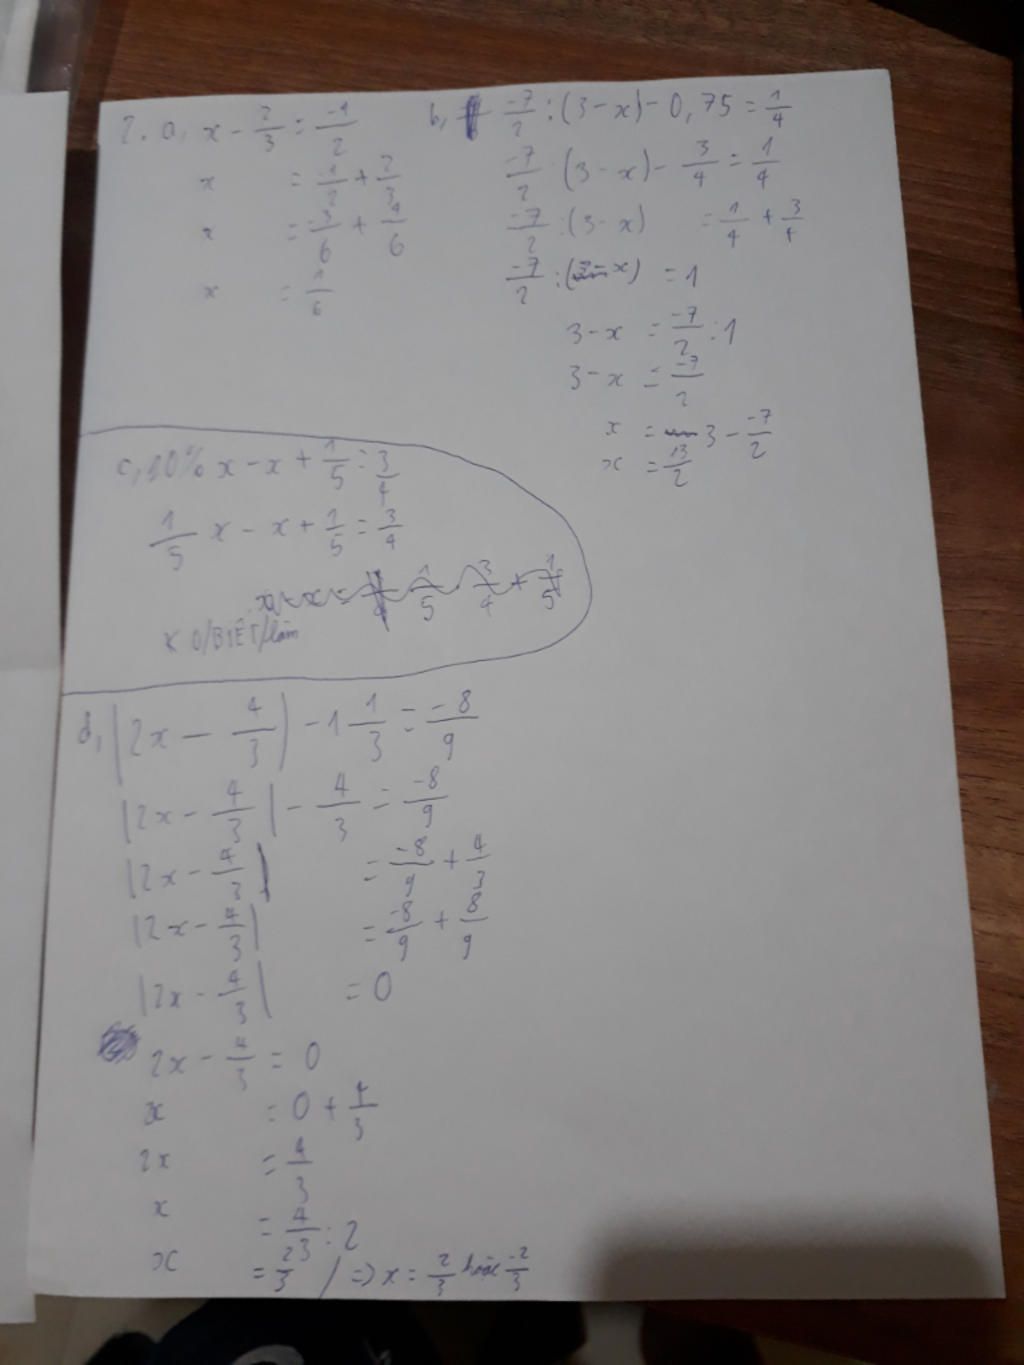 2. a, x - 2/3 = -1/2
x = -1/2 + 2/3
x = -3/6 + 4/6
x = 1/6
b, -7/2 : (3 - x) - 0,75 = 1/4
-7/2 : (3 - x) - 3/4 = 1/4
-7/2 : (3 - x) = 1/4 + 3/4
-7/2 : (3 - x) = 1
3 - x = -7/2 : 1
3 - x = -7/2
x = 3 - -7/2
x = 13/2
c, % x - x + 1/5 = 3/4
1/5 x - x + 1/5 = 3/4
1/5 . 3/4 + 1/5
K O/BIẾT/làm
d, |2x - 4/3| - 1 1/3 = -8/9
|2x - 4/3| - 4/3 = -8/9
|2x - 4/3| = -8/9 + 4/3
|2x - 4/3| = -8/9 + 8/9
|2x - 4/3| = 0
2x - 4/3 = 0
x = 0 + 4/3
2x = 4/3
x = 4/3 : 2
x = 2/3 / => x = 2/3 hoặc -2/3